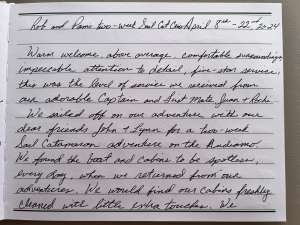 Rob and Pam's two-week Sail Cat Crew April 8th - 22nd 2024
Warm welcome, above average, comfortable surroundings,
impeccable attention to detail, five-star service,
this was the level of service we received from
our adorable Captain and First Mate, Juan + Richi.
We sailed off on our adventure with our
dear friends John + Lynn for a two-week
Sail Catamaran adventure on the
We found the boat and cabins to be spotless,
every day, when we returned from our
adventures. We would find our cabins freshly
cleaned with little extra touches. We